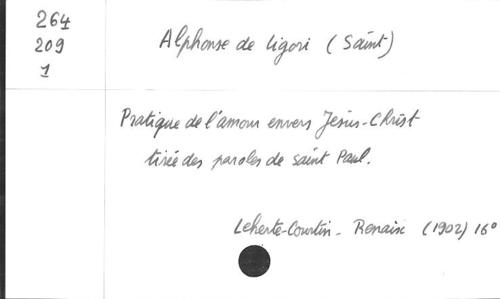 264
209
1
Alphonse de Ligori (Saint)
Pratique de l'amour envers Jésus-Christ
tirée des paroles de saint Paul.
Leherte-Courtin - Renaix (1902) 16°